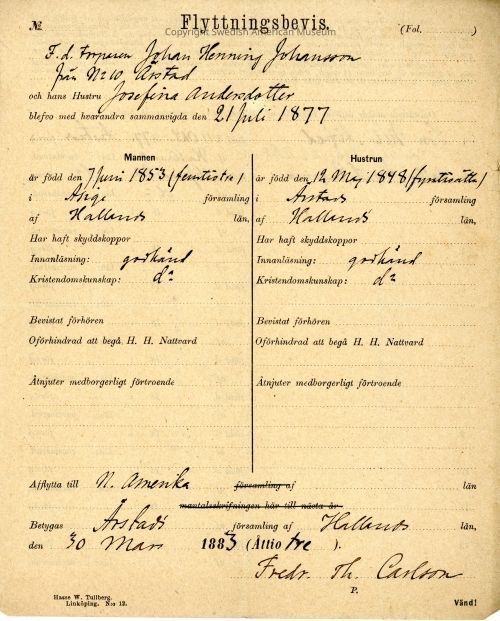 № Flyttningsbevis. (Fol. )
Copyright Swedish American Museum
F. d. torparen Johan Henning Johansson
från No 10, Årstad
och hans Hustru Josefina Andersdotter
blefvo med hvarandra sammanvigda den 21 Juli 1877
Mannen
är född den 7 Juni 1853 (femtiotre)
i Abige församling
af Hallands län,
Har haft skyddskoppor
Innanläsning: godkänd
Kristendomskunskap: do
Bevistat förhören
Oförhindrad att begå H. H. Nattvard
Åtnjuter medborgerligt förtroende
Hustrun
är född den 12 Maj 1848 (fyrtioåtta)
i Årstads församling
af Hallands län,
Har haft skyddskoppor
Innanläsning: godkänd
Kristendomskunskap: do
Bevistat förhören
Oförhindrad att begå H. H. Nattvard
Åtnjuter medborgerligt förtroende
Afflytta till N. Amerika församling af län
mantalsskrifningen här till nästa år.
Betygas Årstads församling af Hallands län,
den 30 Mars 1883 (Åttiotre ).
Fredr. Th. Carlson
P.
Hasse W. Tullberg.
Linköping. N:o 12.
Vänd!